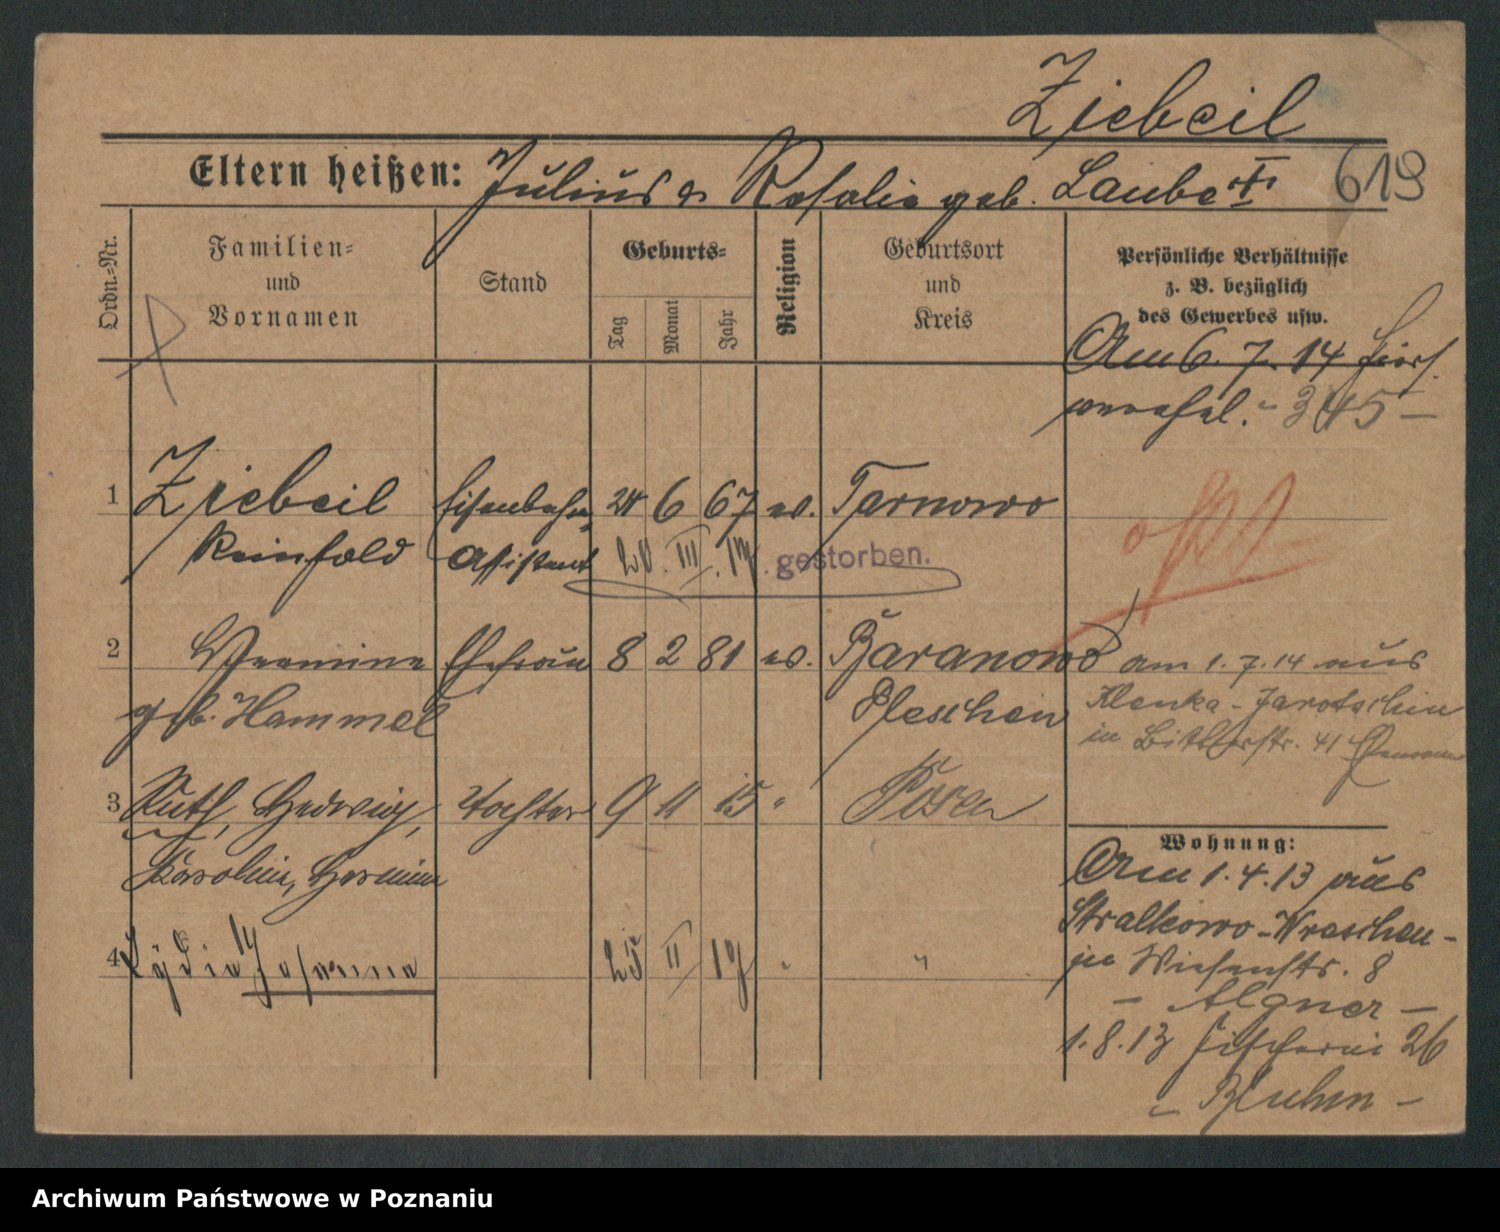 Ziebeil
Eltern heißen: Julius & Rosalie geb. Laube
619
Ordn.=Nr.
Familien=
und
Vornamen
Stand
Geburts=
Tag
Monat
Jahr
Religion
Geburtsort
und
Kreis
Persönliche Verhältnisse
z. B. bezüglich
des Gewerbes usw.
Am 6. 7. 14
345 –
1 Ziebeil Eisenbahn 24 6 67 ev. Tarnowo
Reinhold Assistent 20. III. 17. gestorben.
2 Hermine Ehefrau 8 2 81 ev. Baranowo
geb. Hammel Pleschen
am 1.7.14 aus
Klenka - Jarotschin
in Bitterstr. 41
3 Ruth, Hedwig, Tochter 9 11 15 " Posen
Karoline, Hermine
4 Lydia Johanna 25 II 17 " "
Wohnung:
Am 1.4.13 aus
Stralkowo - Wreschen -
in Wiesenstr. 8
– Algner –
1.8.13 Fischerei 26
– Bluhm –
Archiwum Państwowe w Poznaniu